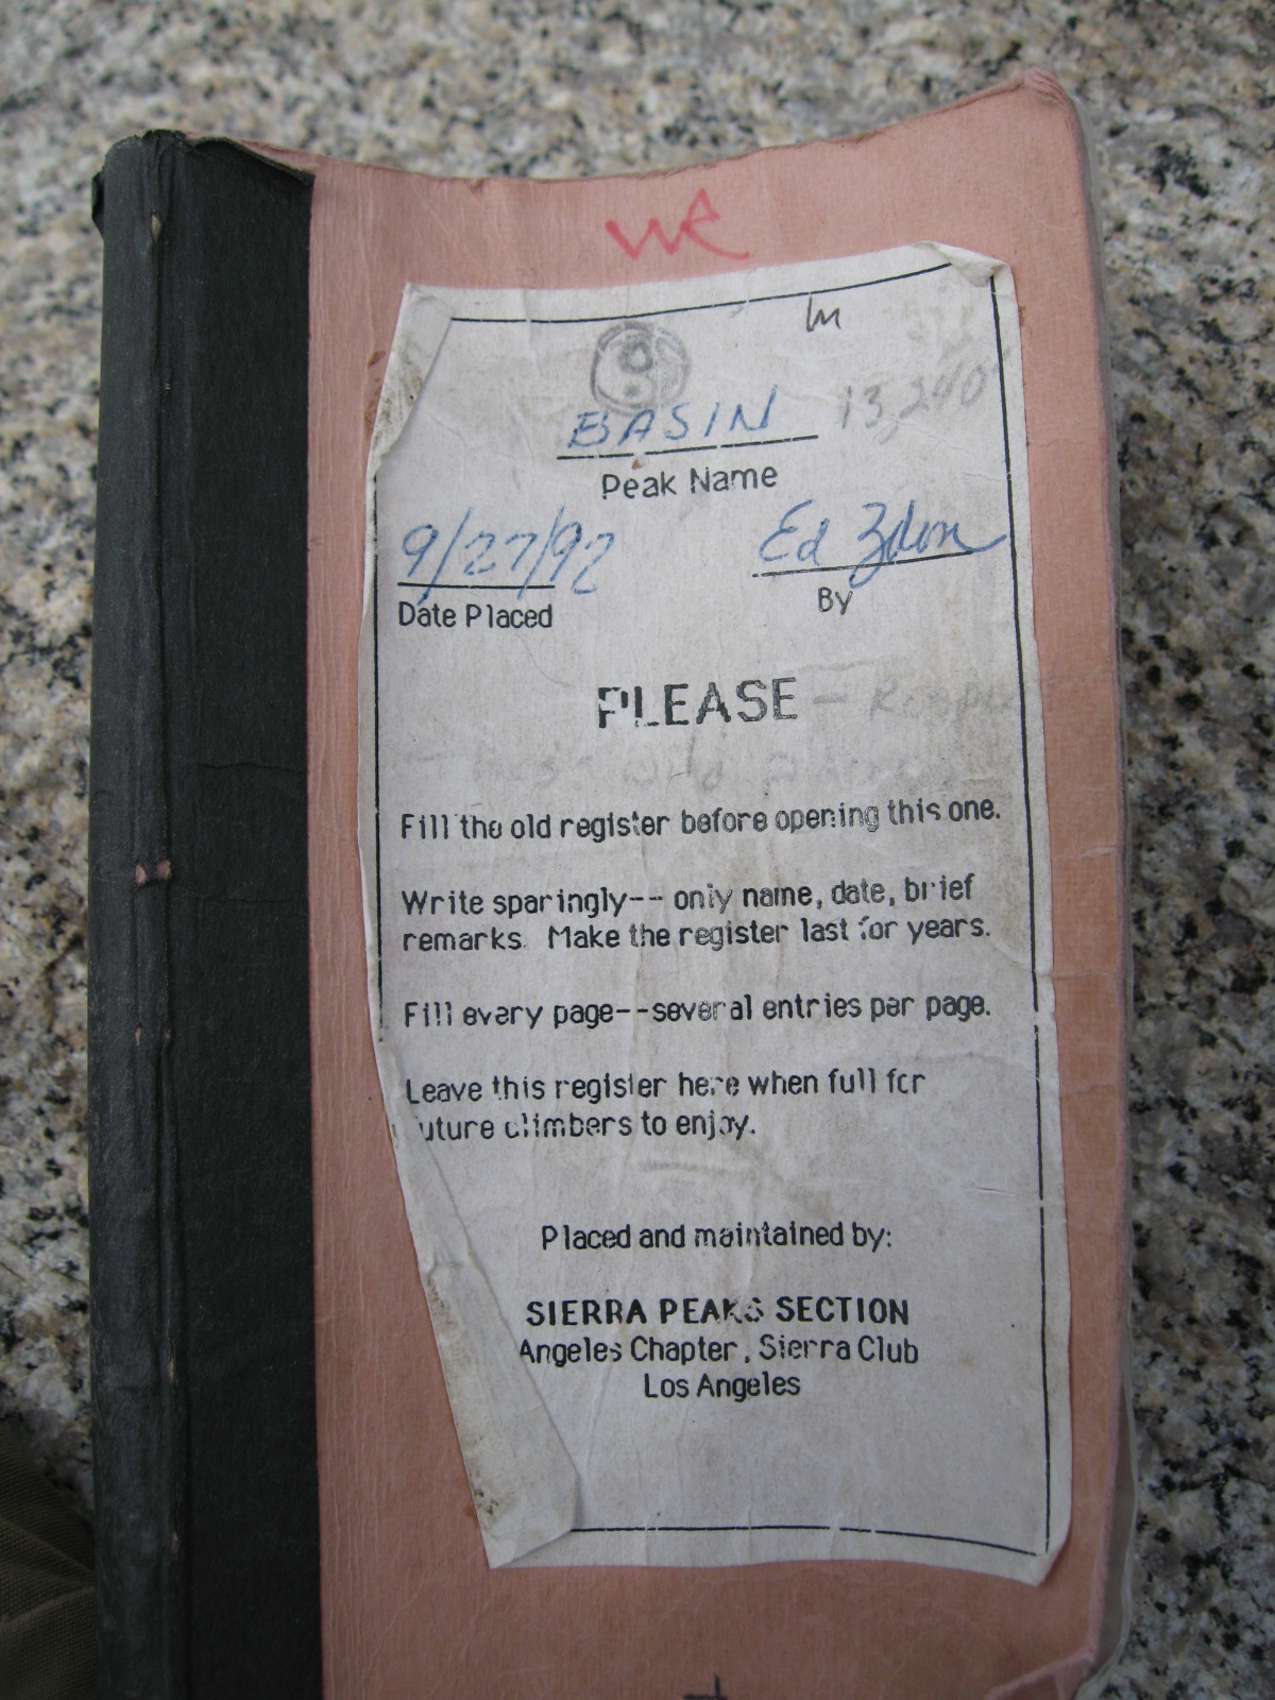 we
BASIN 13,240'
Peak Name
9/27/92 Ed Zdon
Date Placed By
PLEASE -
Fill the old register before opening this one.
Write sparingly-- only name, date, brief
remarks. Make the register last for years.
Fill every page--several entries per page.
Leave this register here when full for
future climbers to enjoy.
Placed and maintained by:
SIERRA PEAKS SECTION
Angeles Chapter, Sierra Club
Los Angeles